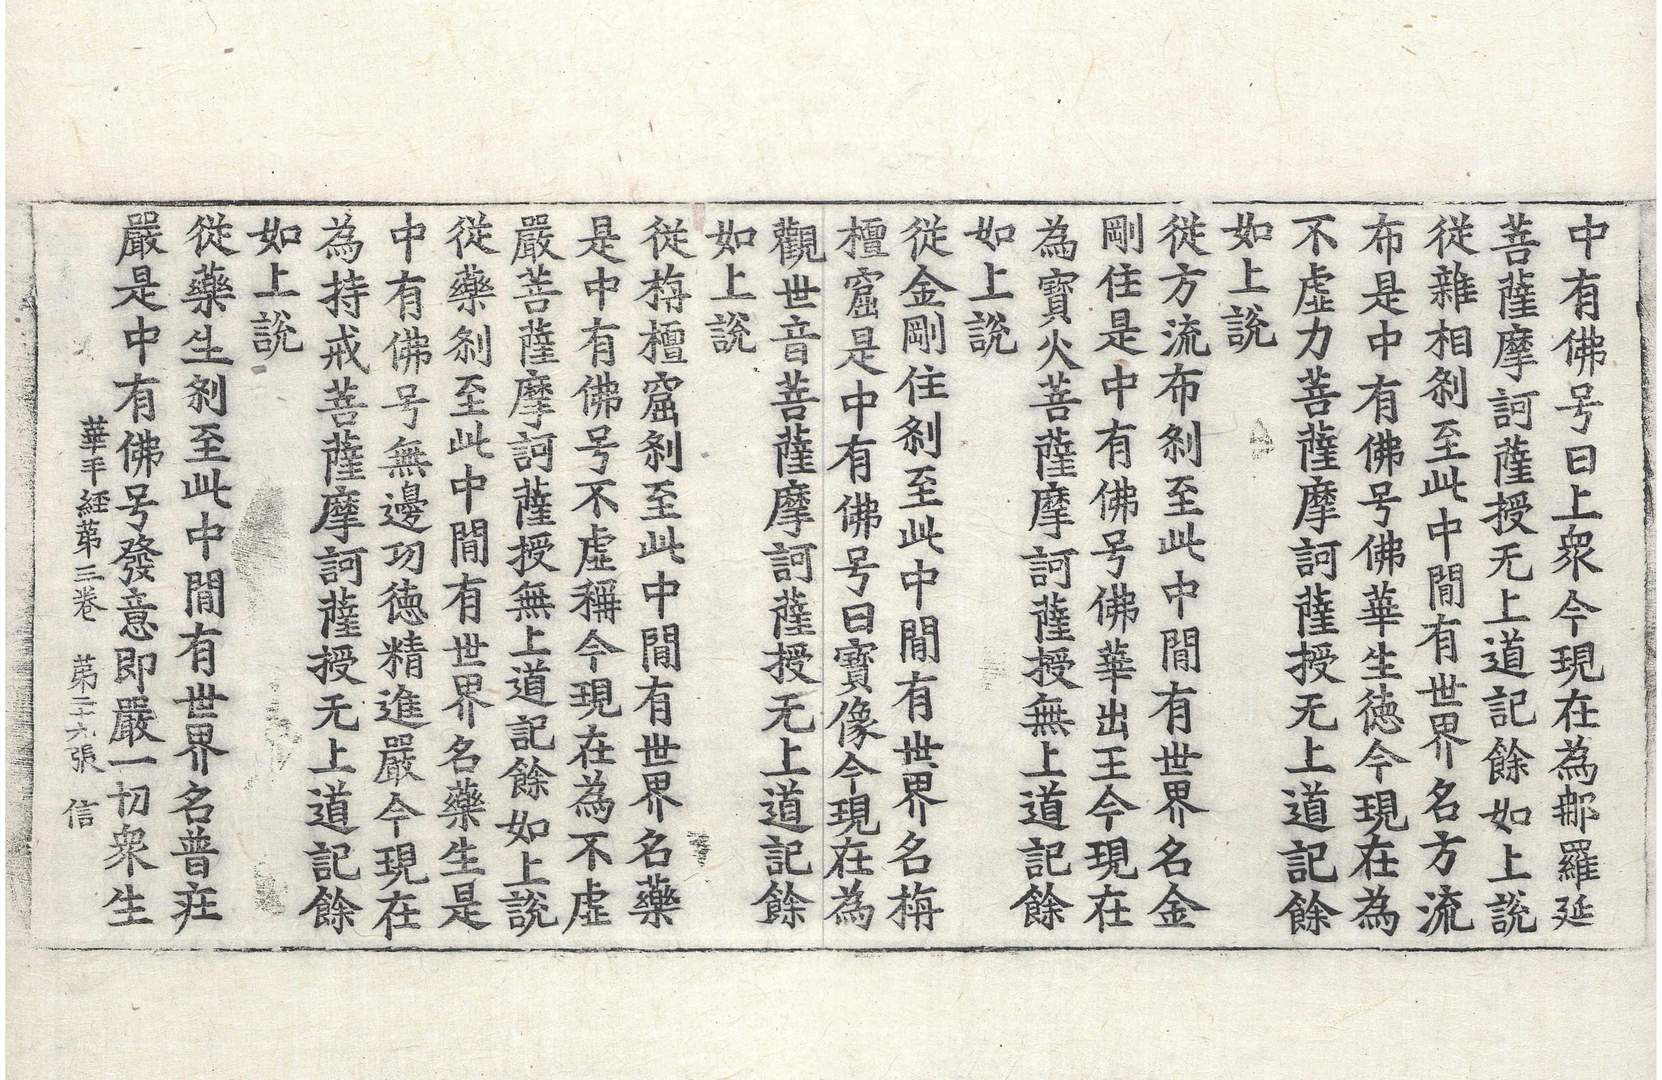 中有佛号曰上衆今現在為𨙻羅延
菩薩摩訶薩授无上道記餘如上說
従雜相刹至此中閒有世界名方流
布是中有佛号佛華生徳今現在為
不虛力菩薩摩訶薩授无上道記餘
如上說
従方流布刹至此中閒有世界名金
剛住是中有佛号佛華出王今現在
為寶火菩薩摩訶薩授無上道記餘
如上說
従金剛住刹至此中閒有世界名栴
檀窟是中有佛号曰寶像今現在為
觀世音菩薩摩訶薩授无上道記餘
如上說
従栴檀窟刹至此中閒有世界名藥
是中有佛号不虛稱今現在為不虛
嚴菩薩摩訶薩授無上道記餘如上說
従藥刹至此中閒有世界名藥生是
中有佛号無邊功徳精進嚴今現在
為持戒菩薩摩訶薩授无上道記餘
如上說
従藥生刹至此中閒有世界名普㽵
嚴是中有佛号發意即嚴一切衆生
華手經苐三卷 苐二十九張 信